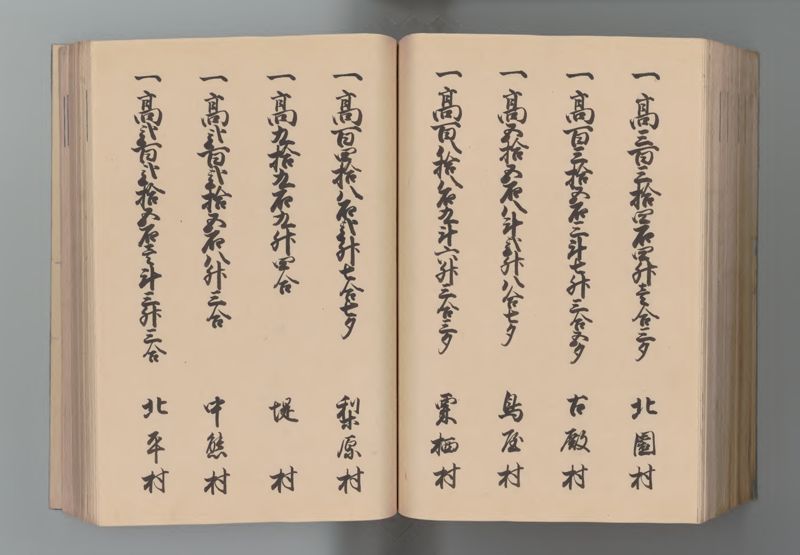 一高三百三拾四石四升壱合三夕 北園村
一高百三拾五石三斗七升三合五夕 古殿村
一高五拾五石八斗弐升八合七夕 鳥屋村
一高百八拾八石九斗六升三合三夕 粟栖村
一高百四拾八石弐升七合七夕 梨原村
一高九拾九石九升四合 堤村
一高弐百弐拾五石八升三合 中熊村
一高弐百弐拾五石壱斗三升三合 北平村